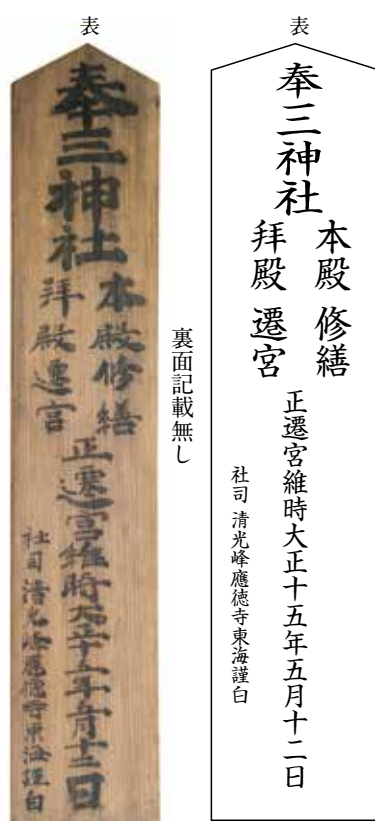 表
奉三神社
本殿 修繕
拜殿 遷宮
正遷宮維時大正十五年五月十二日
社司 清光峰應徳寺東海謹白
裏面記載無し
表
奉三神社
本殿修繕
拜殿遷宮
正遷宮維時大正十五年五月十二日
社司 清光峰應徳寺東海謹白